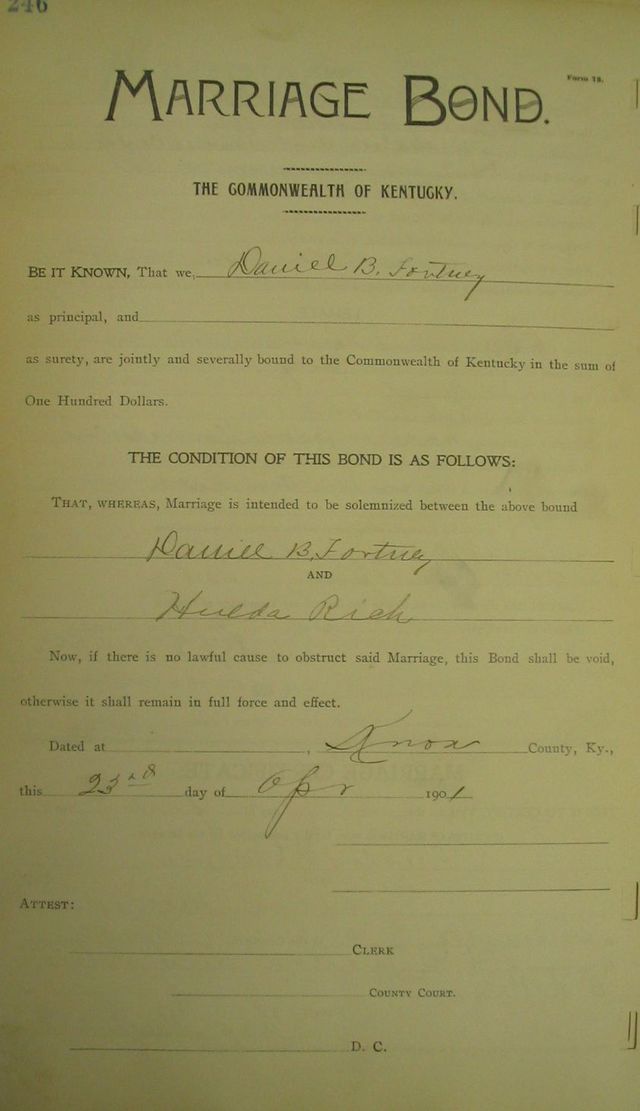 246
Form 78.
MARRIAGE BOND.
THE COMMONWEALTH OF KENTUCKY.
BE IT KNOWN, That we, Daniel B. Fortney
as principal, and
as surety, are jointly and severally bound to the Commonwealth of Kentucky in the sum of
One Hundred Dollars.
THE CONDITION OF THIS BOND IS AS FOLLOWS:
THAT, WHEREAS, Marriage is intended to be solemnized between the above bound
Daniel B. Fortney
AND
Hulda Rich
Now, if there is no lawful cause to obstruct said Marriage, this Bond shall be void,
otherwise it shall remain in full force and effect.
Dated at , Knox County, Ky.,
this 23rd day of Apr 1901
ATTEST:
CLERK
COUNTY COURT.
D. C.